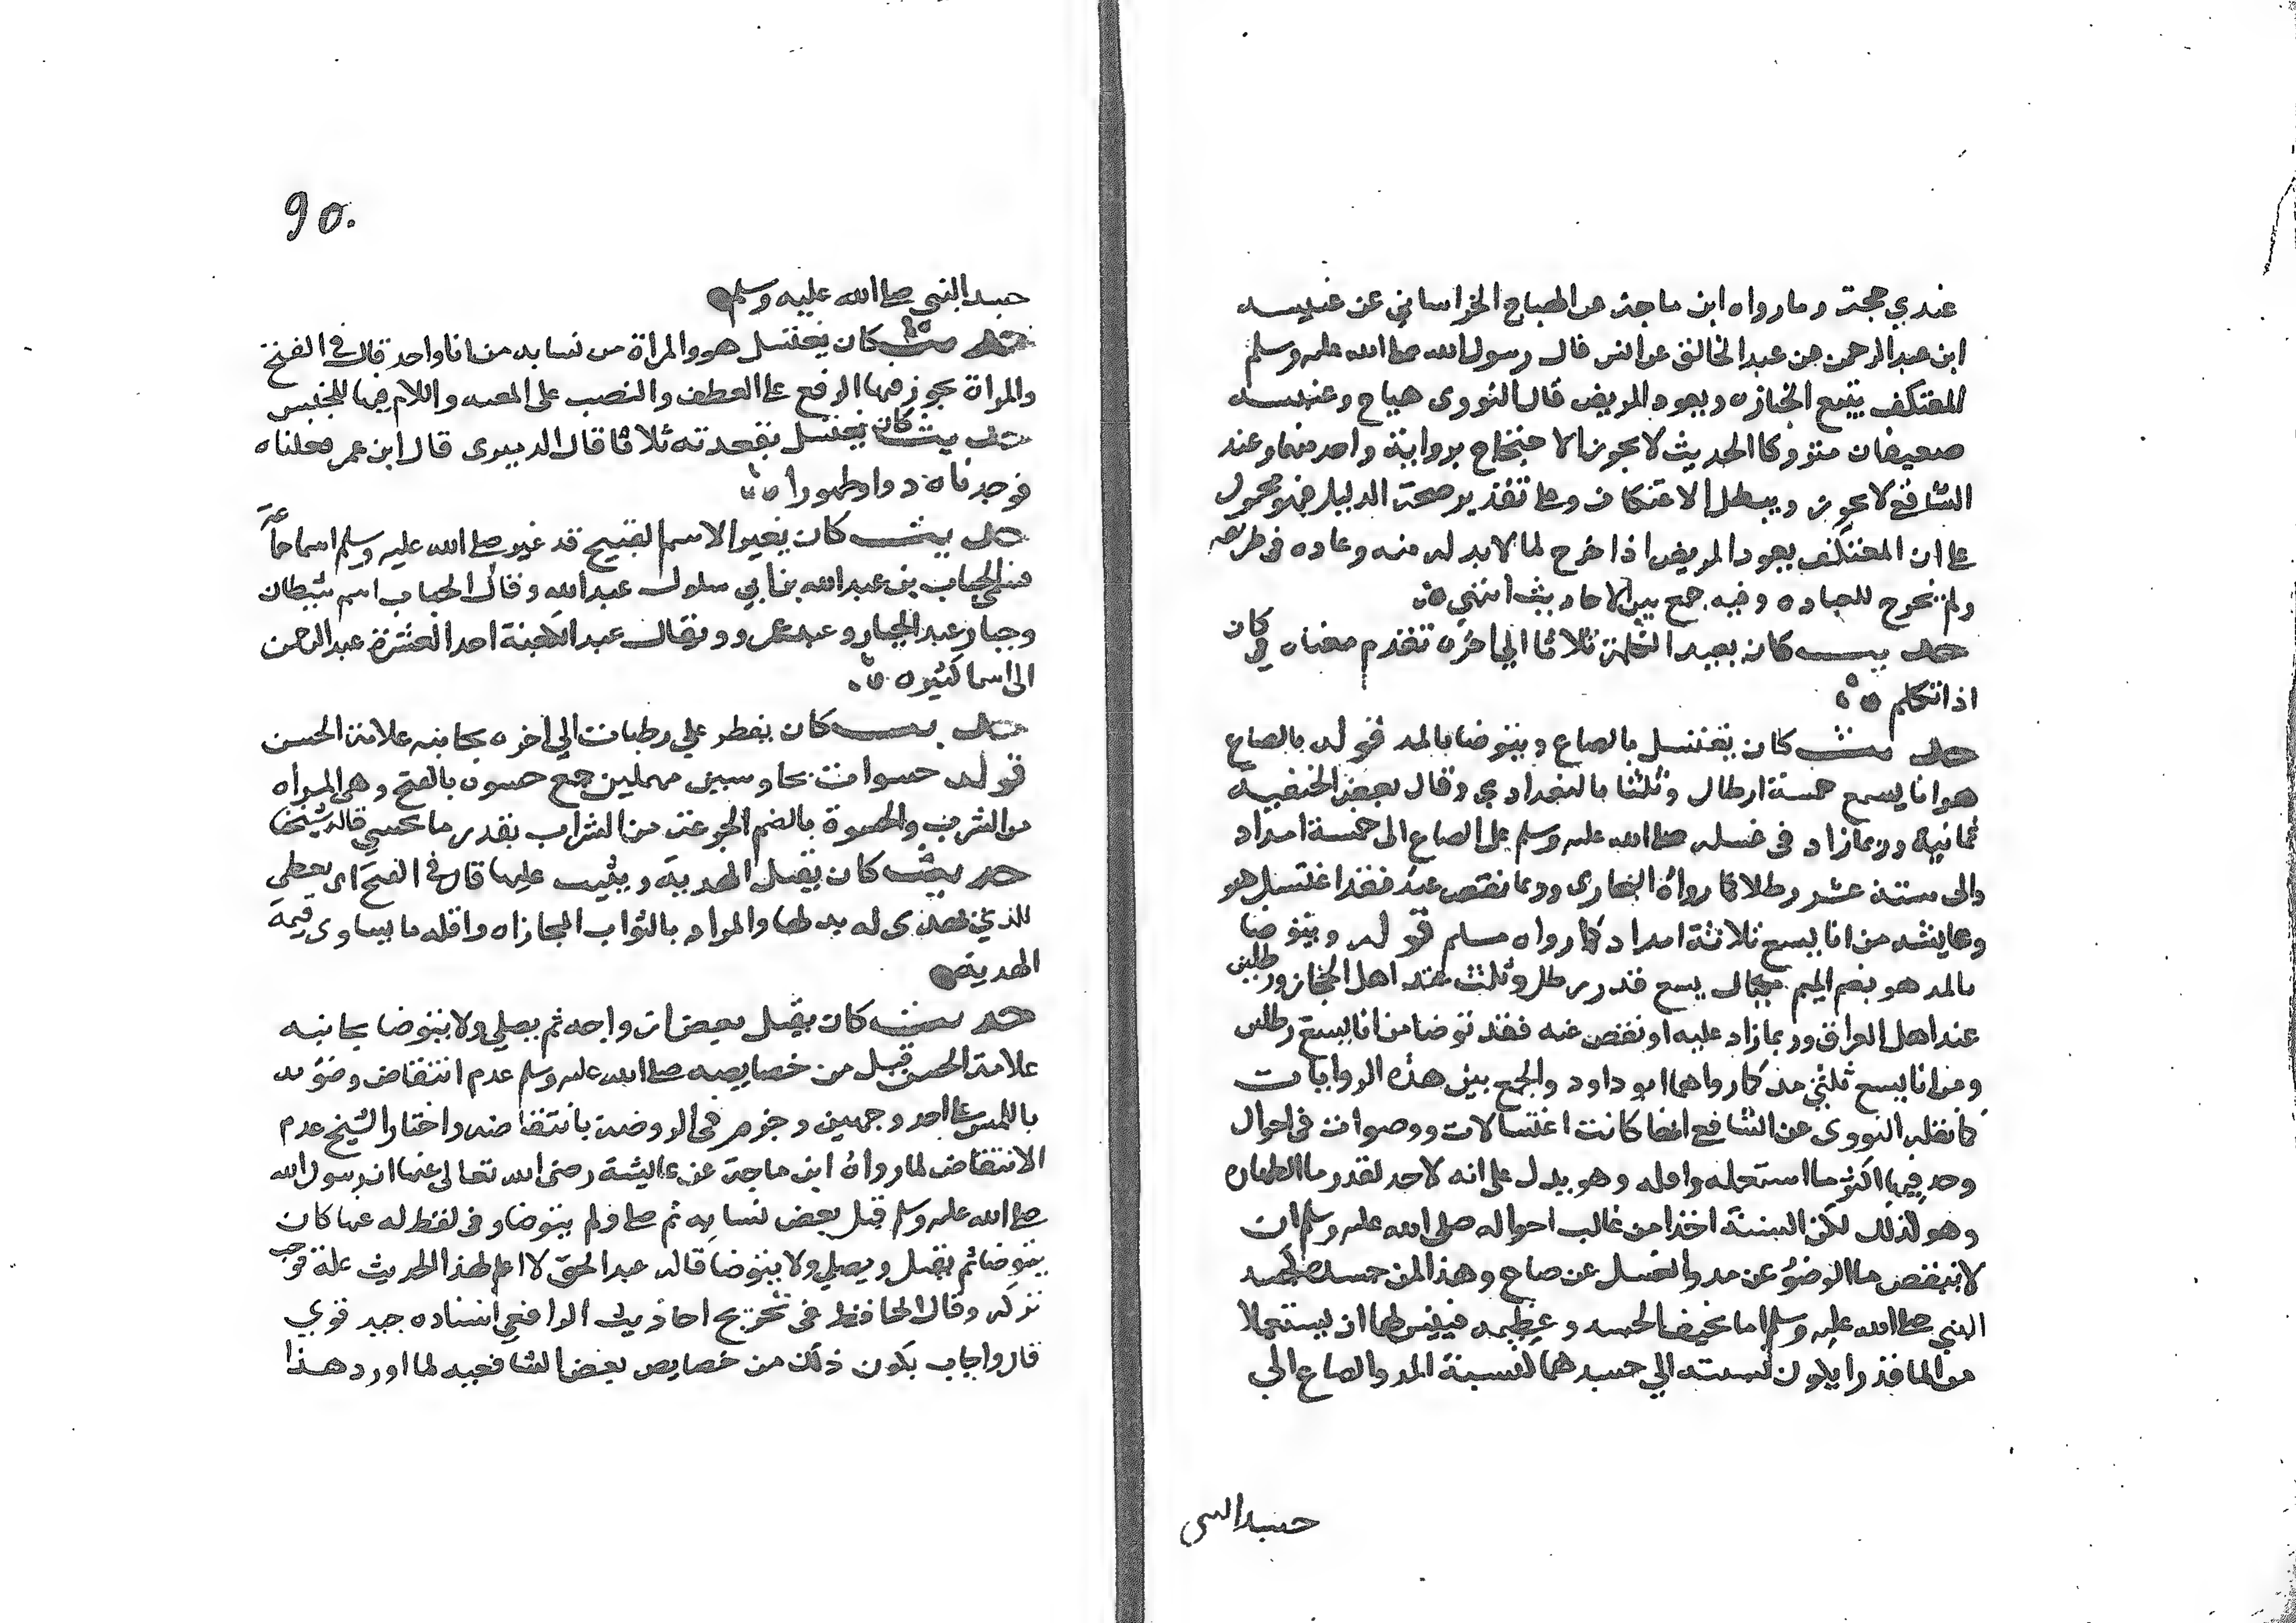 عندي حجة وما رواه ابن ماجة عن الهياج الخراساني عن عنبسه
ابن عبد الرحمن عن عبد الخالق عن انس قال رسول الله صلى الله عليه وسلم
المعتكف يتبع الجنازه ويعود المريض قال النووى هياج وعنبسه
ضعيفان متروكا الحديث لا يجوز الاحتجاج برواية واحد منهما وعند
الشافعي لا يجوز ويبطل الاعتكاف وعلى تقدير صحة الدليل فهو محمول
على ان المعتكف يعود المريض اذا خرج لما لا بد له منه وعاده فى طريقه
ولم يخرج للعياده وفيه جمع بين الاحاديث انتهي
حديث كان يعيد الكلمة ثلاثا الي اخره تقدم معناه في كان
اذا تكلم
حديث كان يغتسل بالصاع ويتوضا بالمد قوله بالصاع
هو انا يسع خمسة ارطال وثلثا بالبغدادي وقال بعض الحنفيه
ثمانية وربما زاد فى غسله صلى الله عليه وسلم على الصاع الى خمسة امداد
والى ستة عشر رطلا كما رواه البخارى وربما نقص عنه فقد اغتسل هو
وعايشه من انا يسع ثلاثة امداد كما رواه مسلم قوله ويتوضا
بالمد هو بضم الميم مكيال يسع قدر رطل وثلث عند اهل الحجاز ورطلين
عند اهل العراق وربما زاد عليه او نقص عنه فقد توضا من انا يسع رطلين
ومن انا يسع ثلثي مد كما رواهما ابو داود والجمع بين هذه الروايات
كما نقله النووى عن الشافعي انها كانت اغتسالات ووضوات فى احوال
وجد فيها اكثر ما استعمله واقله وهو يدل على انه لا حد لقدر ما الطهاره
وهو كذلك لكن السنة اخذا من غالب احواله صلى الله عليه وسلم ان
لا ينقص ما الوضوء عن مد والغسل عن صاع وهذا لمن جسده كجسد
النبي صلى الله عليه وسلم اما نحيف الجسد وعظيمه فيسن لهما ان يستعملا
من الما قدرا يكون نسبته الي جسدهما كنسبة المد والصاع الي
جسد النبي
90.
جسد النبي صلى الله عليه وسلم
حديث كان يغتسل هو والمراة من نسايه من انا واحد قال فى الفتح
والمراة يجوز فيها الرفع على العطف والنصب على المعيه واللام فيها للجنس
حديث كان يغسل مقعدته ثلاثا قال الدميرى قال ابن عمر فعلناه
فوجدناه دوا وطهورا
حديث كان يغير الاسم القبيح قد غير صلى الله عليه وسلم اسما جماعة
فسمى الحباب بن عبد الله بن ابي سلول عبد الله وقال الحباب اسم شيطان
وجبار عبد الجبار وعبد عمرو ويقال عبد الكعبة احد العشرة عبد الرحمن
الى اسما كثيره
حديث كان يفطر على رطبات الي اخره بجانبه علامة الحسن
قوله حسوات بحا وسين مهملتين جمع حسوه بالفتح وهي المراه
من الشرب والحسوة بالضم الجرعة من الشراب بقدر ما يحسي قاله شيخنا
حديث كان يقبل الهدية ويثيب عليها قال فى الفتح اى يعطي
للذي يهدى له بدلها والمراد بالثواب المجازاه واقله ما يساوى قيمة
الهدية
حديث كان يقبل بعض ازواجه ثم يصلي ولا يتوضا بجانبه
علامة الحسن قيل من خصايصه صلى الله عليه وسلم عدم انتقاض وضوءه
باللمس على احد وجهين وجزم فى الروضة بانتقاضه واختار الشيخ عدم
الانتقاض لما رواه ابن ماجة عن عايشة رضى الله تعالى عنها ان رسول الله
صلى الله عليه وسلم قبل بعض نسايه ثم صلى ولم يتوضا وفى لفظ له عنها كان
يتوضا ثم يقبل ويصلي ولا يتوضا قال عبد الحق لا اعلم لهذا الحديث علة توجب
تركه وقال الحافظ فى تخريج احاديث الرافعي اسناده جيد قوي
قال واجاب بكون ذلك من خصايص بعض الشافعيه لما اورد هذا